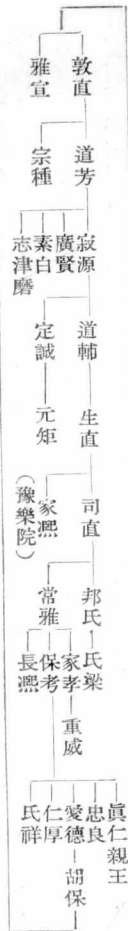 敦直
雅宣
道芳
宗種
寂源
廣賢
素白
志津磨
道輔
定誠
生直
元矩
司直
家凞
(豫樂院)
邦氏
常雅
氏梁
家孝
保考
長凞
重威
眞仁親王
忠良
愛德
仁厚
氏祥
胡保